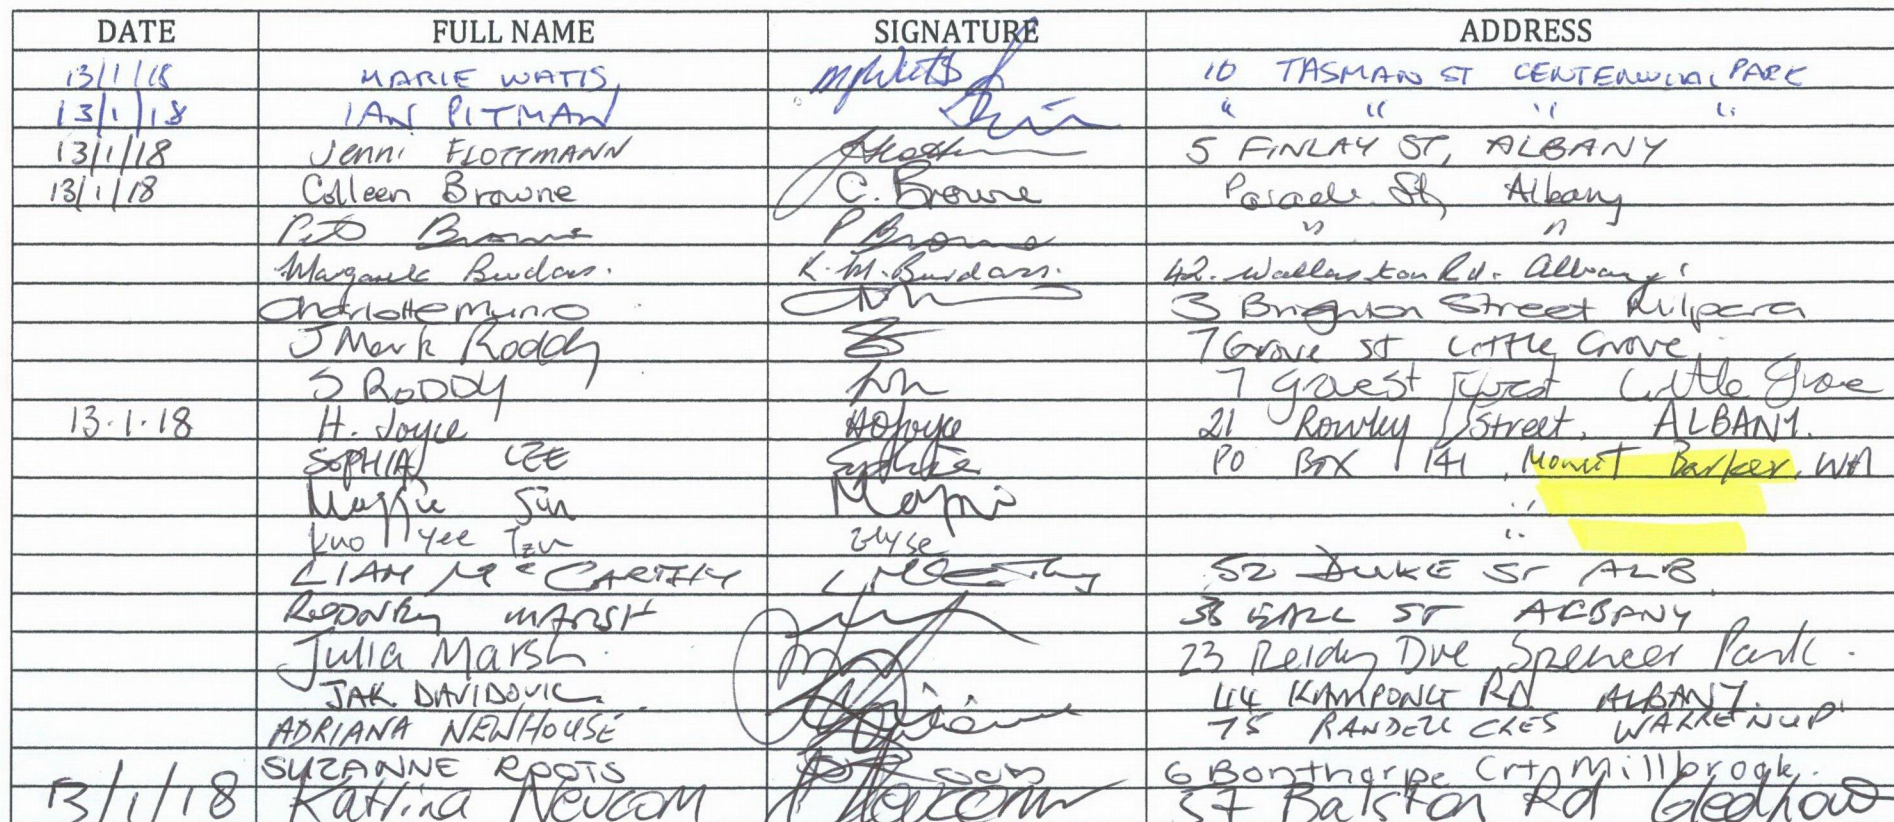 DATE FULL NAME SIGNATURE ADDRESS
13/1/18 MARIE WATTS, MPWatts 10 TASMAN ST CENTENNIAL PARK
13/1/18 IAN PITMAN " " " "
13/1/18 Jenni FLOTTMANN 5 FINLAY ST, ALBANY
13/1/18 Colleen Browne C. Browne Parade St, Albany
Browne P Browne " "
Margaret K. M. 42. Rd. Albany
Charlotte Munro 3 Street
J Mark Roddy 7 Grove St Little Grove
S RODDY 7 Little Grove
13.1.18 H. Joyce HJoyce 21 Rowley Street, ALBANY.
SOPHIA LEE Sophie PO BOX 141, Mount Barker, WA
Maggie Sun "
Kuo Yee Tzu Elyse "
LIAM McCARTHY L McCarthy 52 DUKE ST ALB
RODNEY MARSH EARL ST ALBANY
Julia Marsh 23 Reidy Dve Spencer Park.
JAK DAVIDOVIC 44 KAMPONG RD ALBANY.
ADRIANA NEWHOUSE 75 RANDELL CRES WARRENUP
SUZANNE ROOTS 6 Bonthorpe Crt, Millbrook.
13/1/18 Katrina Newcom 37 Balston Rd Gledhow